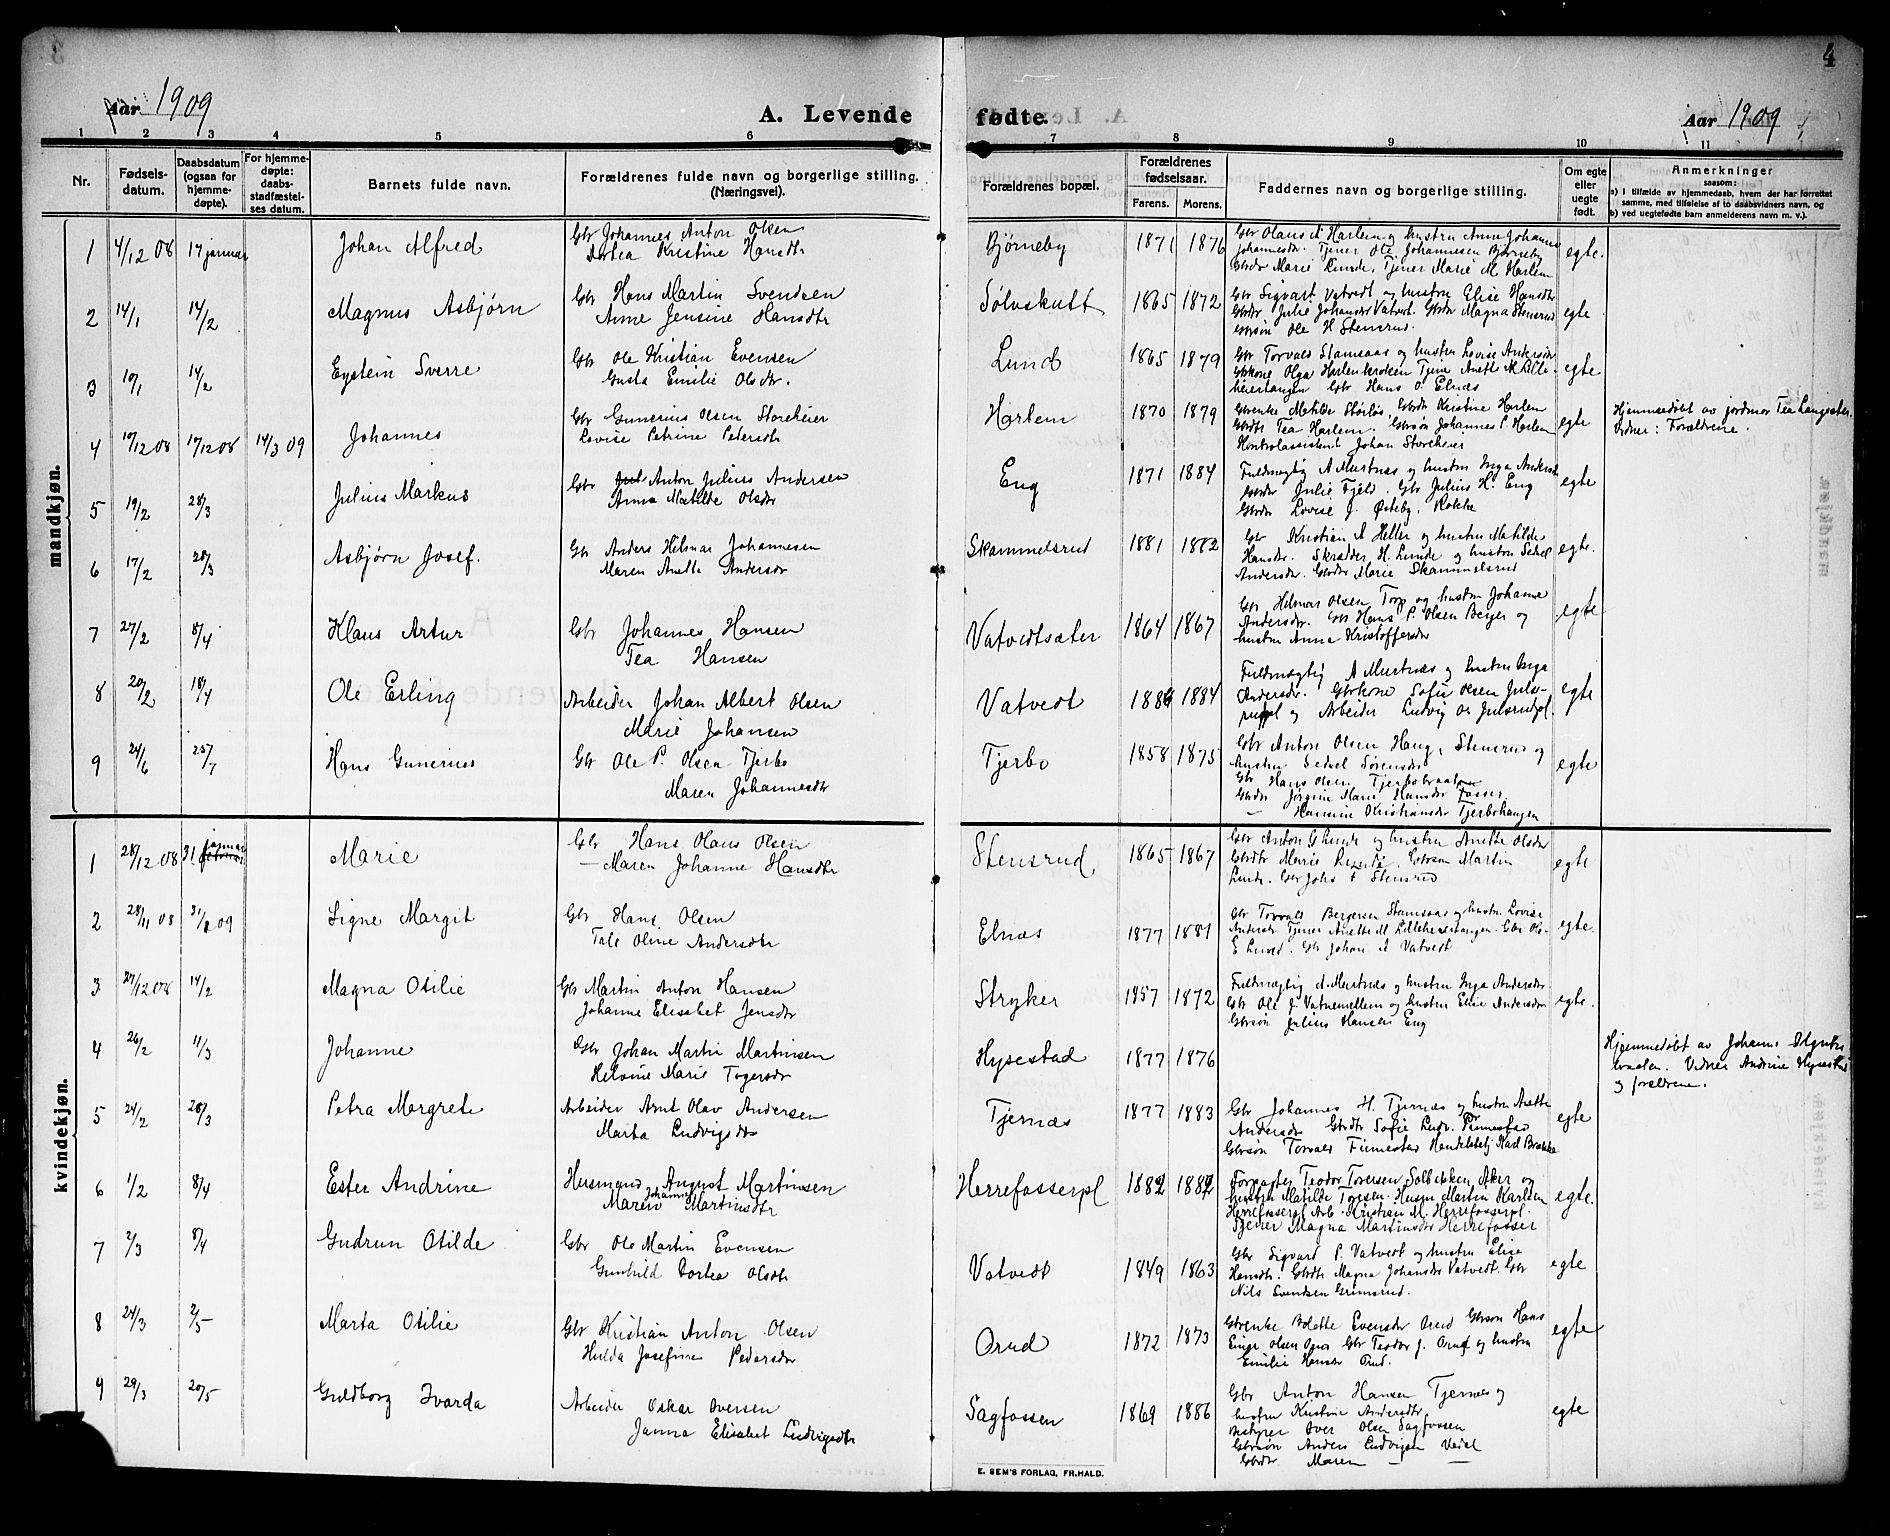 4
Aar 1909
A. Levende fødte.
Aar 1909
1 2 3 4 5 6 7 8 9 10 11
Nr.
Fødsels-
datum.
Daabsdatum
(ogsaa for
hjemme-
døpte).
For hjemme-
døpte:
daabs-
stadfæstel-
ses datum.
Barnets fulde navn.
Forældrenes fulde navn og borgerlige stilling.
(Næringsvei).
Forældrenes bopæl.
Forældrenes
fødselsaar.
Farens. Morens.
Faddernes navn og borgerlige stilling.
Om egte
eller
uegte
født.
Anmerkninger
saasom:
a) i tilfælde av hjemmedaab, hvem der har forrettet
samme, med tilføielse af to daabsvidners navn, og
b) ved uegtefødte barn anmelderens navn m. v.).
mandkjøn.
1 4/12 08 17 januar Johan Alfred
Gbr Johannes Anton Olsen
Dortea Kristine Hansdtr
Bjørneby 1871 1876
Gbr Olaus A Harlem og hustru Anne Johanne
Johannesdr. Tjener Ole Johannesen Bjørneby
Gbrdr Marie Lunde, Tjener Marie M. Harlem
egte.
2 14/1 14/2 Magnus Asbjørn
Gbr Hans Martin Svendsen
Anne Jensine Hansdtr
Sølvskutt 1865 1872
Gbr Sigvart Vatvedt og hustru Elise Hansdtr
Gbrdr Julie Johansdr Vatvedt. Gbrdr Magna Stensrud
Gbrsøn Ole H Stensrud.
egte
3 10/1 14/2 Eystein Sverre
Gbr Ole Kristian Evensen
Gusta Emilie Olsdtr.
Lund 1865 1879
Gbr Torvald Stamsaas og hustru Lovise Andersdr
Gbrkone Olga Harlemkroken Tjen Anette M Lille-
heiestangen Gbr Hans O. Elnæs
egte
4 10/12 08 17/12 08 14/3 09 Johannes
Gbr Gunerius Olsen Storeheier
Lovise Petrine Pedersdtr
Harlem 1870 1879
Gbrenke Matilde Skørløs, Gbrdr Kristine Harlem
Gbrdtr Tea Harlem. Gbrsøn Johannes P Harlem
Kontrolassistent Johan Storeheier
egte
Hjemmedøbt av jordmor Tea Langsæter.
Vidner: Forældrene.
5 19/2 28/3 Julius Markus
Gbr Anton Julius Andersen
Anna Matilde Olsdtr
Eng 1871 1884
Fuldmægtig A Murtnæs og hustru Inga Andersdr
Gbrdr Julie Fjeld. Gbr Julius H. Eng
Gbrdr Lovise J. Østeby, Rokke
egte
6 17/2 28/3 Asbjørn Josef.
Gbr Anders Hilmar Johannesen
Maren Anette Andersdr
Skammelsrud 1881 1882
Gbr Kristian A Heller og hustru Matilde
Hansdtr. Skrædder H. Lunde og hustru Sedsel
Andersdr. Gbrdtr Marie Skammelsrud
egte.
7 27/2 8/4 Klaus Artur
Gbr Johannes Hansen
Tea Hansen
Vatvedtsæter 1864 1867
Gbr Hilmar Olsen Torp og hustru Johanne
Andersdr. Gbr Hans P. Olsen Berger og
hustru Anna Kristoffersdr
egte
8 20/2 18/4 Ole Erling
Arbeider Johan Albert Olsen
Marie Johansen
Vatvedt 1884 1884
Fuldmægtig A Murtnæs og hustru Inga
Andersdr. Gbrkone Sofie Olsen Juls-
rudpl og Arbeider Ludvig Ol Julsrudpl.
egte
9 24/6 25/7 Hans Gunerius
Gbr Ole P. Olsen Tjerbo
Maren Johannesdtr
Tjerbo 1858 1875
Gbr Anton Olsen Haug, Stensrud og
hustru Sedsel Sørensdr
Gbr Hans Olsen Tjerbobraaten
Gbrdr Jørgine Marie Hansdr Fosser
— Hansine Kristiansdr Tjerbohaugen
egte
kvindekjøn.
1 28/12 08 31 januar Marie
Gbr Hans Olaus Olsen
— Maren Johanne Hansdtr
Stensrud 1865 1867
Gbr Anton G Lunde og hustru Anette Olsdtr
Gbrdtr Marie Lunde. Gbrsøn Martin
Lunde. Gbr Johs F Stensrud
egte
2 28/11 08 31/1 09 Signe Margit
Gbr Hans Olsen
Tale Oline Andersdtr
Elnæs 1877 1881
Gbr Torvald Bergersen Stamsaas og hustru Lovise
Andersdr Tjener Anette M Lilleheiestangen. Gbr Ole
E Lund. Gbr Johan A Vatvedt
egte.
3 27/12 08 14/2 Magna Otilie
Gbr Martin Anton Hansen
Johanne Elisabet Jensdtr
Stryker 1857 1872
Fuldmægtig A. Murtnæs og hustru Inga Andersdr
Gbr Ole J. Vatnemellem og hustru Elise Andersdr
Gbrsøn Julius Hansen Eng
egte.
4 26/2 11/3 Johanne
Gbr Johan Martin Martinsen
Helvine Marie Togersdr
Hysestad 1877 1876
Hjemmedøbt av Johanne
braaten. Vidner Andrine Hysestad
og forældrene.
5 24/2 28/3 Petra Margrete
Arbeider Arnt Olav Andersen
Marta Ludvigsdtr
Tjernæs 1877 1883
Gbr Johannes H. Tjernæs og hustru Anette
Andersdr Gbrdtr Sofie Ludv. Finnestad
Gbrsøn Torvald Finnestad Handelsbetj Karl Brække
egte
6 1/2 8/4 Ester Andrine
Husmand August Martinsen
Maren Johanne Martinsdtr
Herrefosserpl 1882 1882
Forpagter Teodor Toresen Solbekken, Aker og
hustru Matilde Toresen. Husm Martin Karlsen
Herrefosserpl Arb. Kristian M. Herrefosserpl.
Tjener Magna Martinsdr Herrefosser
egte.
7 2/3 8/4 Gudrun Otilde
Gbr Ole Martin Evensen
Gunhild Dortea Olsdtr
Vatvedt 1849 1863
Gbr Sigvard P. Vatvedt og hustru Elise
Hansdtr. Gbrdtr Magna Johansdr Vatvedt. Gbr
Nils Svendsen Grimsrud.
egte
8 24/3 2/5 Marta Otilie
Gbr Kristian Anton Olsen
Hulda Josefine Pedersdtr
Orud 1872 1873
Gbrenke Bolette Evensdr Orud Gbrsøn Hans
Einar Olsen Gbr Teodor J. Orud og hustru
Emilie Hansdr Orud.
egte
9 29/3 20/5 Guldborg Ivarda
Arbeider Oskar Oversen
Janna Elisabet Ludvigsdtr
Sagfossen 1869 1886
Gbr Anton Hansen Tjernæs og
hustru Kristine Andersdtr
Bestyrer Over Olsen Sagfossen
Gbrsøn Anders Ludvigsen Vedel
Gbrdr Maren — —
egte
E. SEM'S FORLAG, FR.HALD.